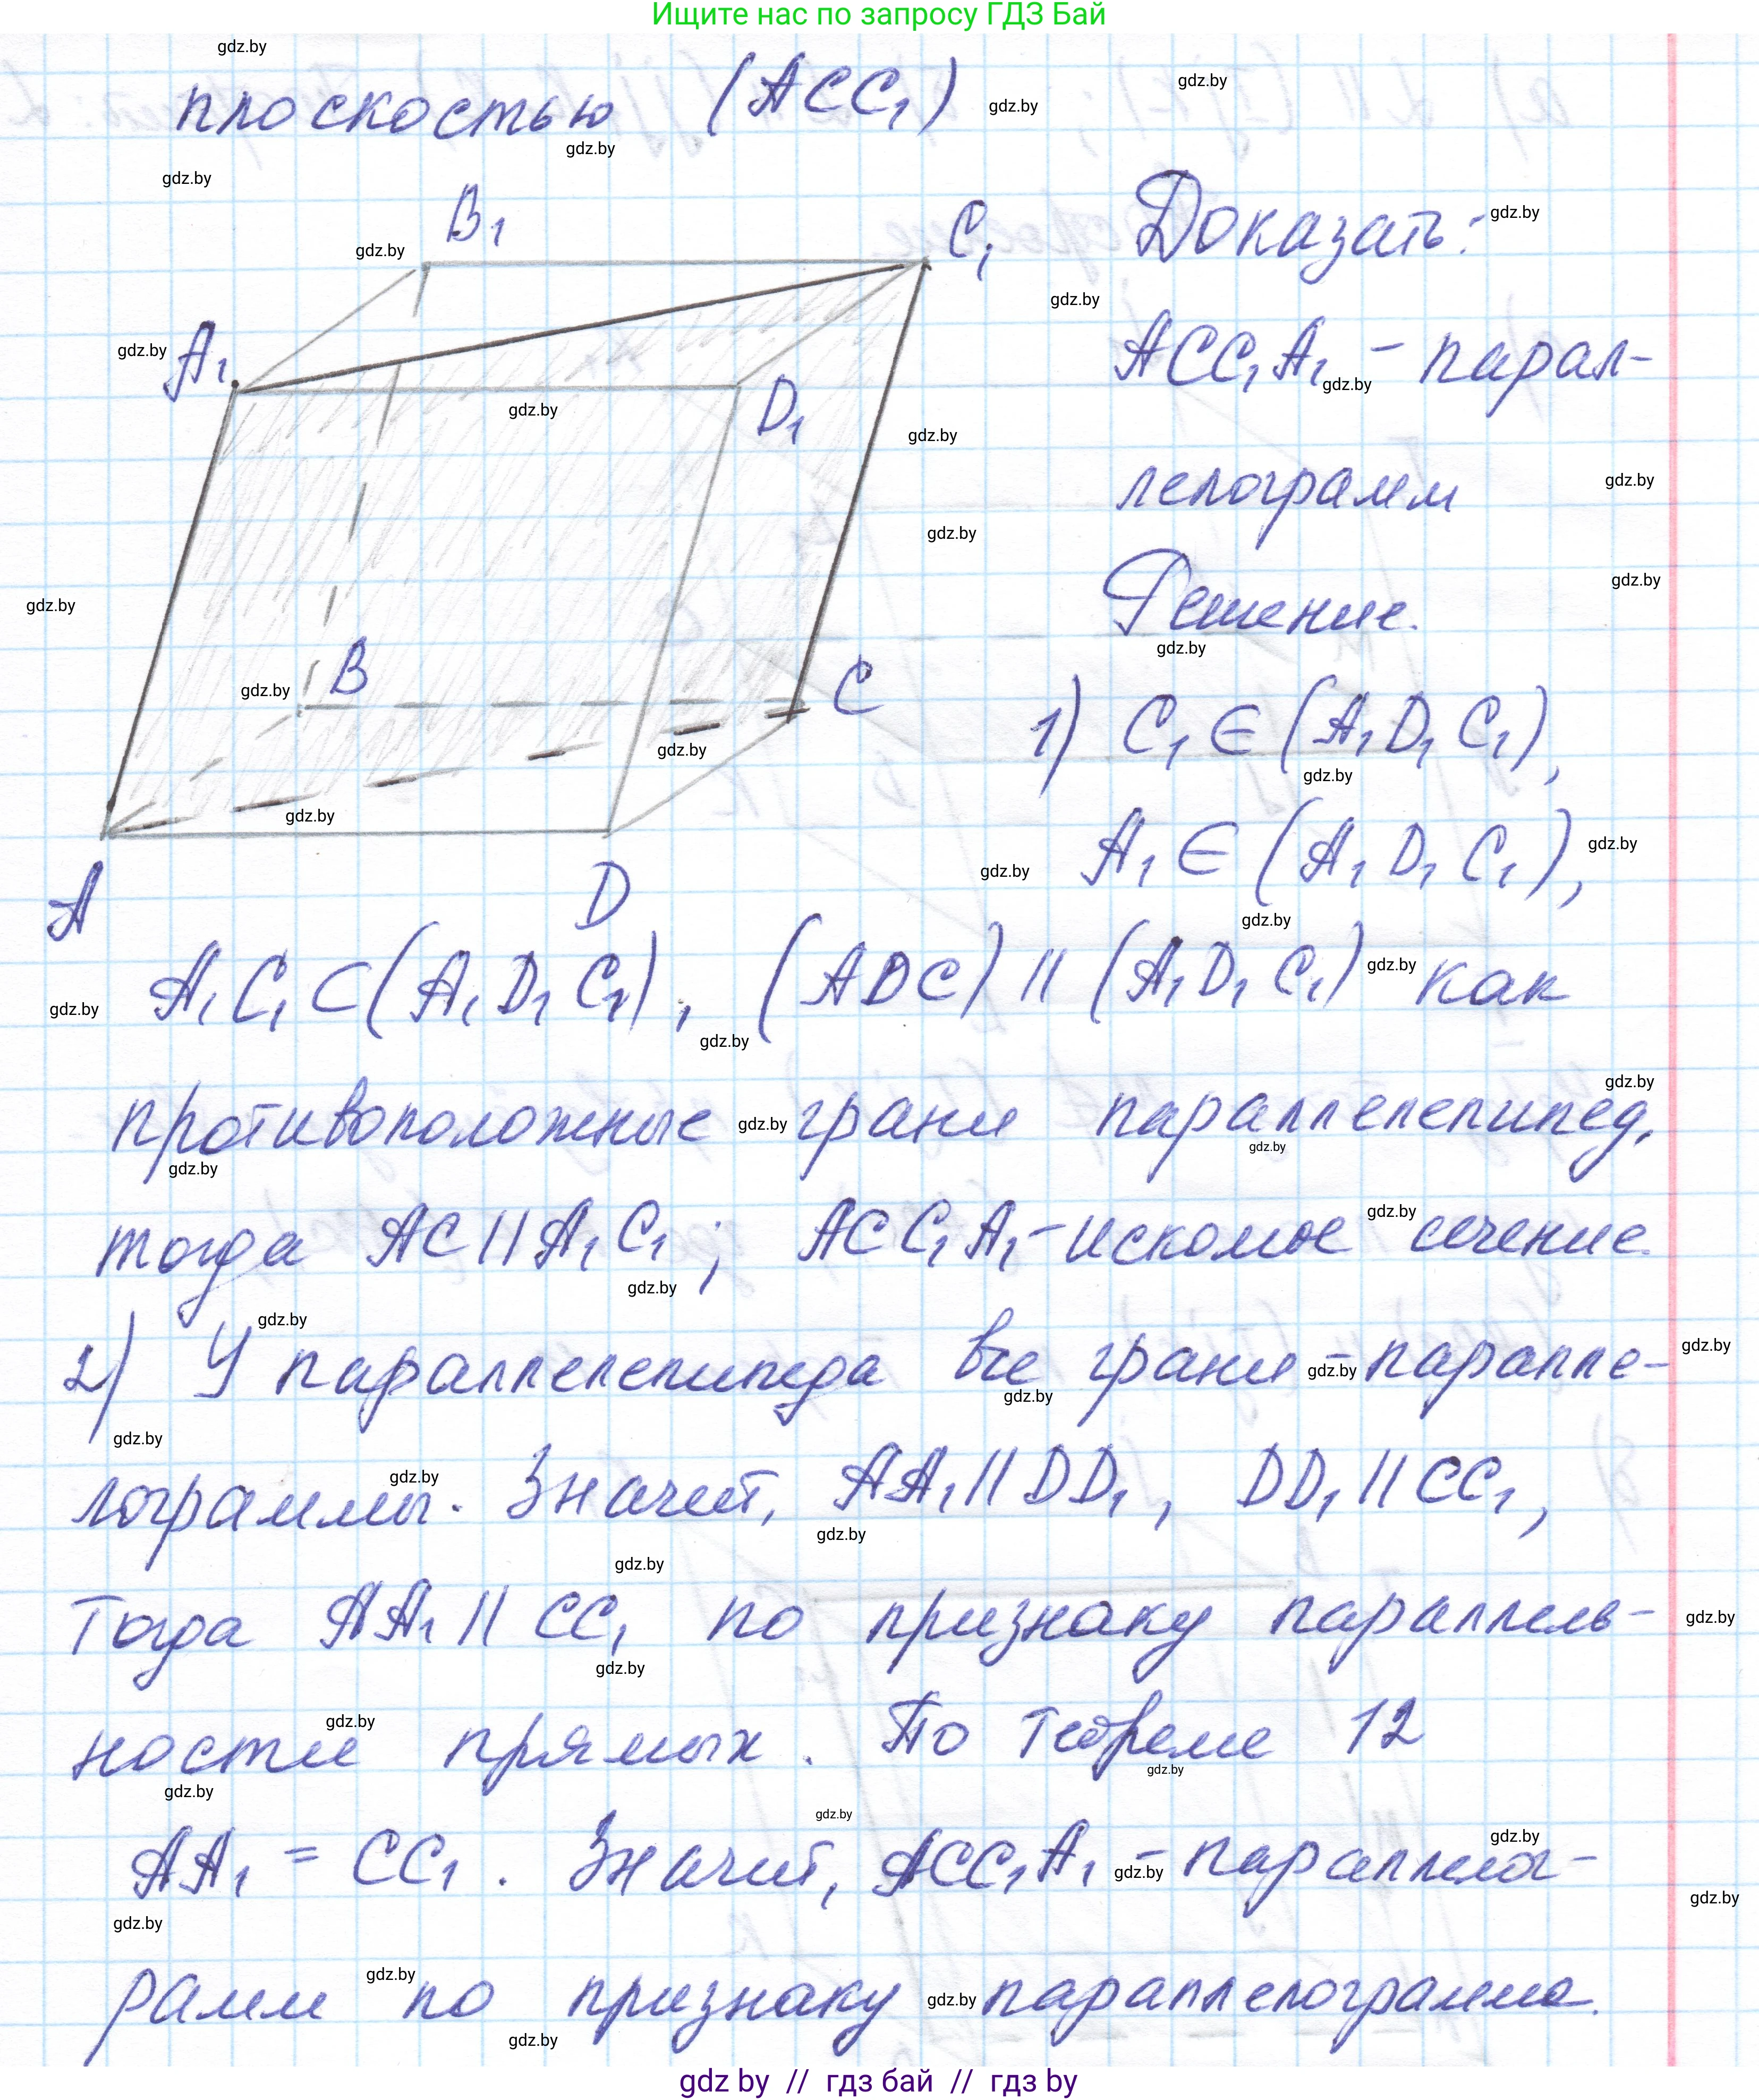 Ищите нас по запросу ГДЗ Бай
gdz.by
плоскостью (ACC₁)
B₁
C₁
A₁
D₁
B
C
A
D
Доказать:
ACC₁A₁ - парал-
лелограмм
Решение.
1) C₁ ∈ (A₁D₁C₁),
A₁ ∈ (A₁D₁C₁),
A₁C₁ ⊂ (A₁D₁C₁), (ADC) || (A₁D₁C₁) как
противоположные грани параллелепипед,
тогда AC || A₁C₁; ACC₁A₁ - искомое сечение.
2) У параллелепипеда все грани - паралле-
лограммы. Значит, AA₁ || DD₁, DD₁ || CC₁,
Тогда AA₁ || CC₁ по признаку параллель-
ности прямых. По теореме 12
AA₁ = CC₁. Значит, ACC₁A₁ - параллелог-
рамм по признаку параллелограмма.
gdz by // гдз бай // гдз by